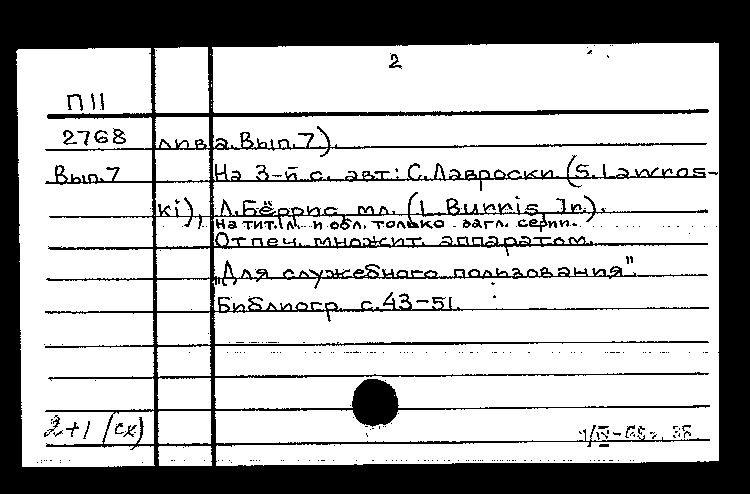 2
П 11
2768 лива. Вып. 7).
Вып. 7 На 3-й с. авт: С. Лавроски (S. Lawros-
ki), Л. Бёррис, мл. (L. Burris, Jr.).
На тит. л. и обл. только загл. серии.
Отпеч. множит. аппаратом.
„Для служебного пользования".
Библиогр. с. 43-51.
2+1 (сх)